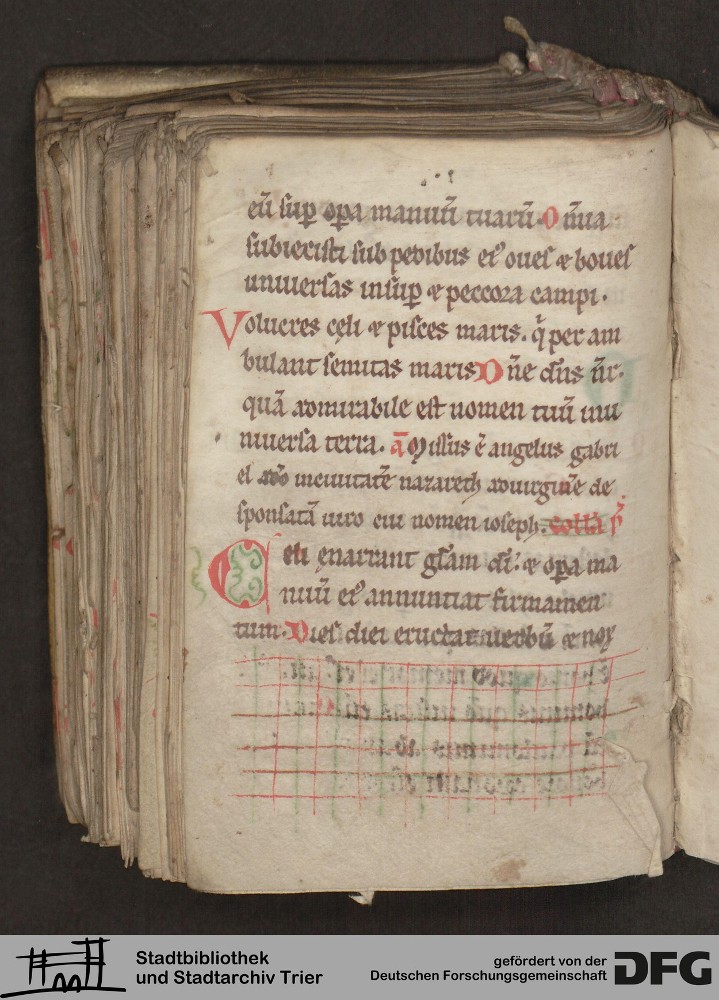 eū sup opa manuū tuarū. Omīa
subiecisti sub pedibus eiꝰ oues ⁊ boues
uniuersas insup ⁊ peccora campi.
Volucres cęli ⁊ pisces maris. q̄ per am
bulant semitas maris Dn̄e dn̄s nr̄.
quā admirabile est nomen tuū in u
niuersa terra. ā Missus ē angelus gabri
el in ciuitatē nazareth ad uirginē de
sponsatā uiro cui nomen ioseph.
Celi enarrant gl̄am di. ⁊ opa ma
nuū eiꝰ annuntiat firmamen
tum. Dies diei eructat uerbū ⁊ nox
Stadtbibliothek
und Stadtarchiv Trier
gefördert von der
Deutschen Forschungsgemeinschaft
DFG